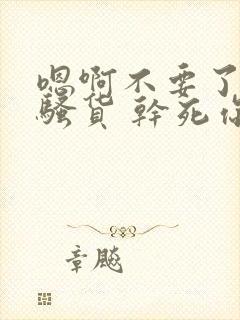 嗯啊不要了
骚货 幹死你
章飚